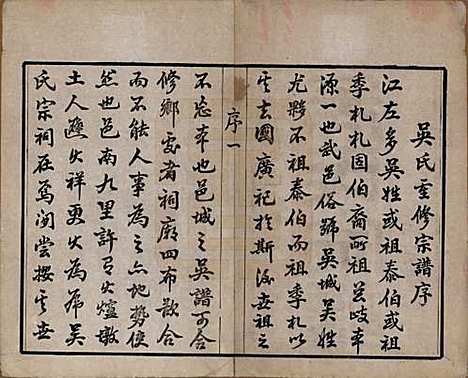 吳氏重修宗譜序
江左多吳姓或祖泰伯或祖
季札札固伯裔所祖若歧本
源一也武邑俗號吳城吳姓
尤夥不祖泰伯而祖季札以
其去國廣祀於斯後世祖之
序一
不忘本也邑城之吳譜可合
修鄉處者祠廟四布散合
而不能人事為之亦地勢使
然也邑南九里許有火爐墩
土人避火祥更火為
吳
氏宗祠在焉閱嘗搜其世